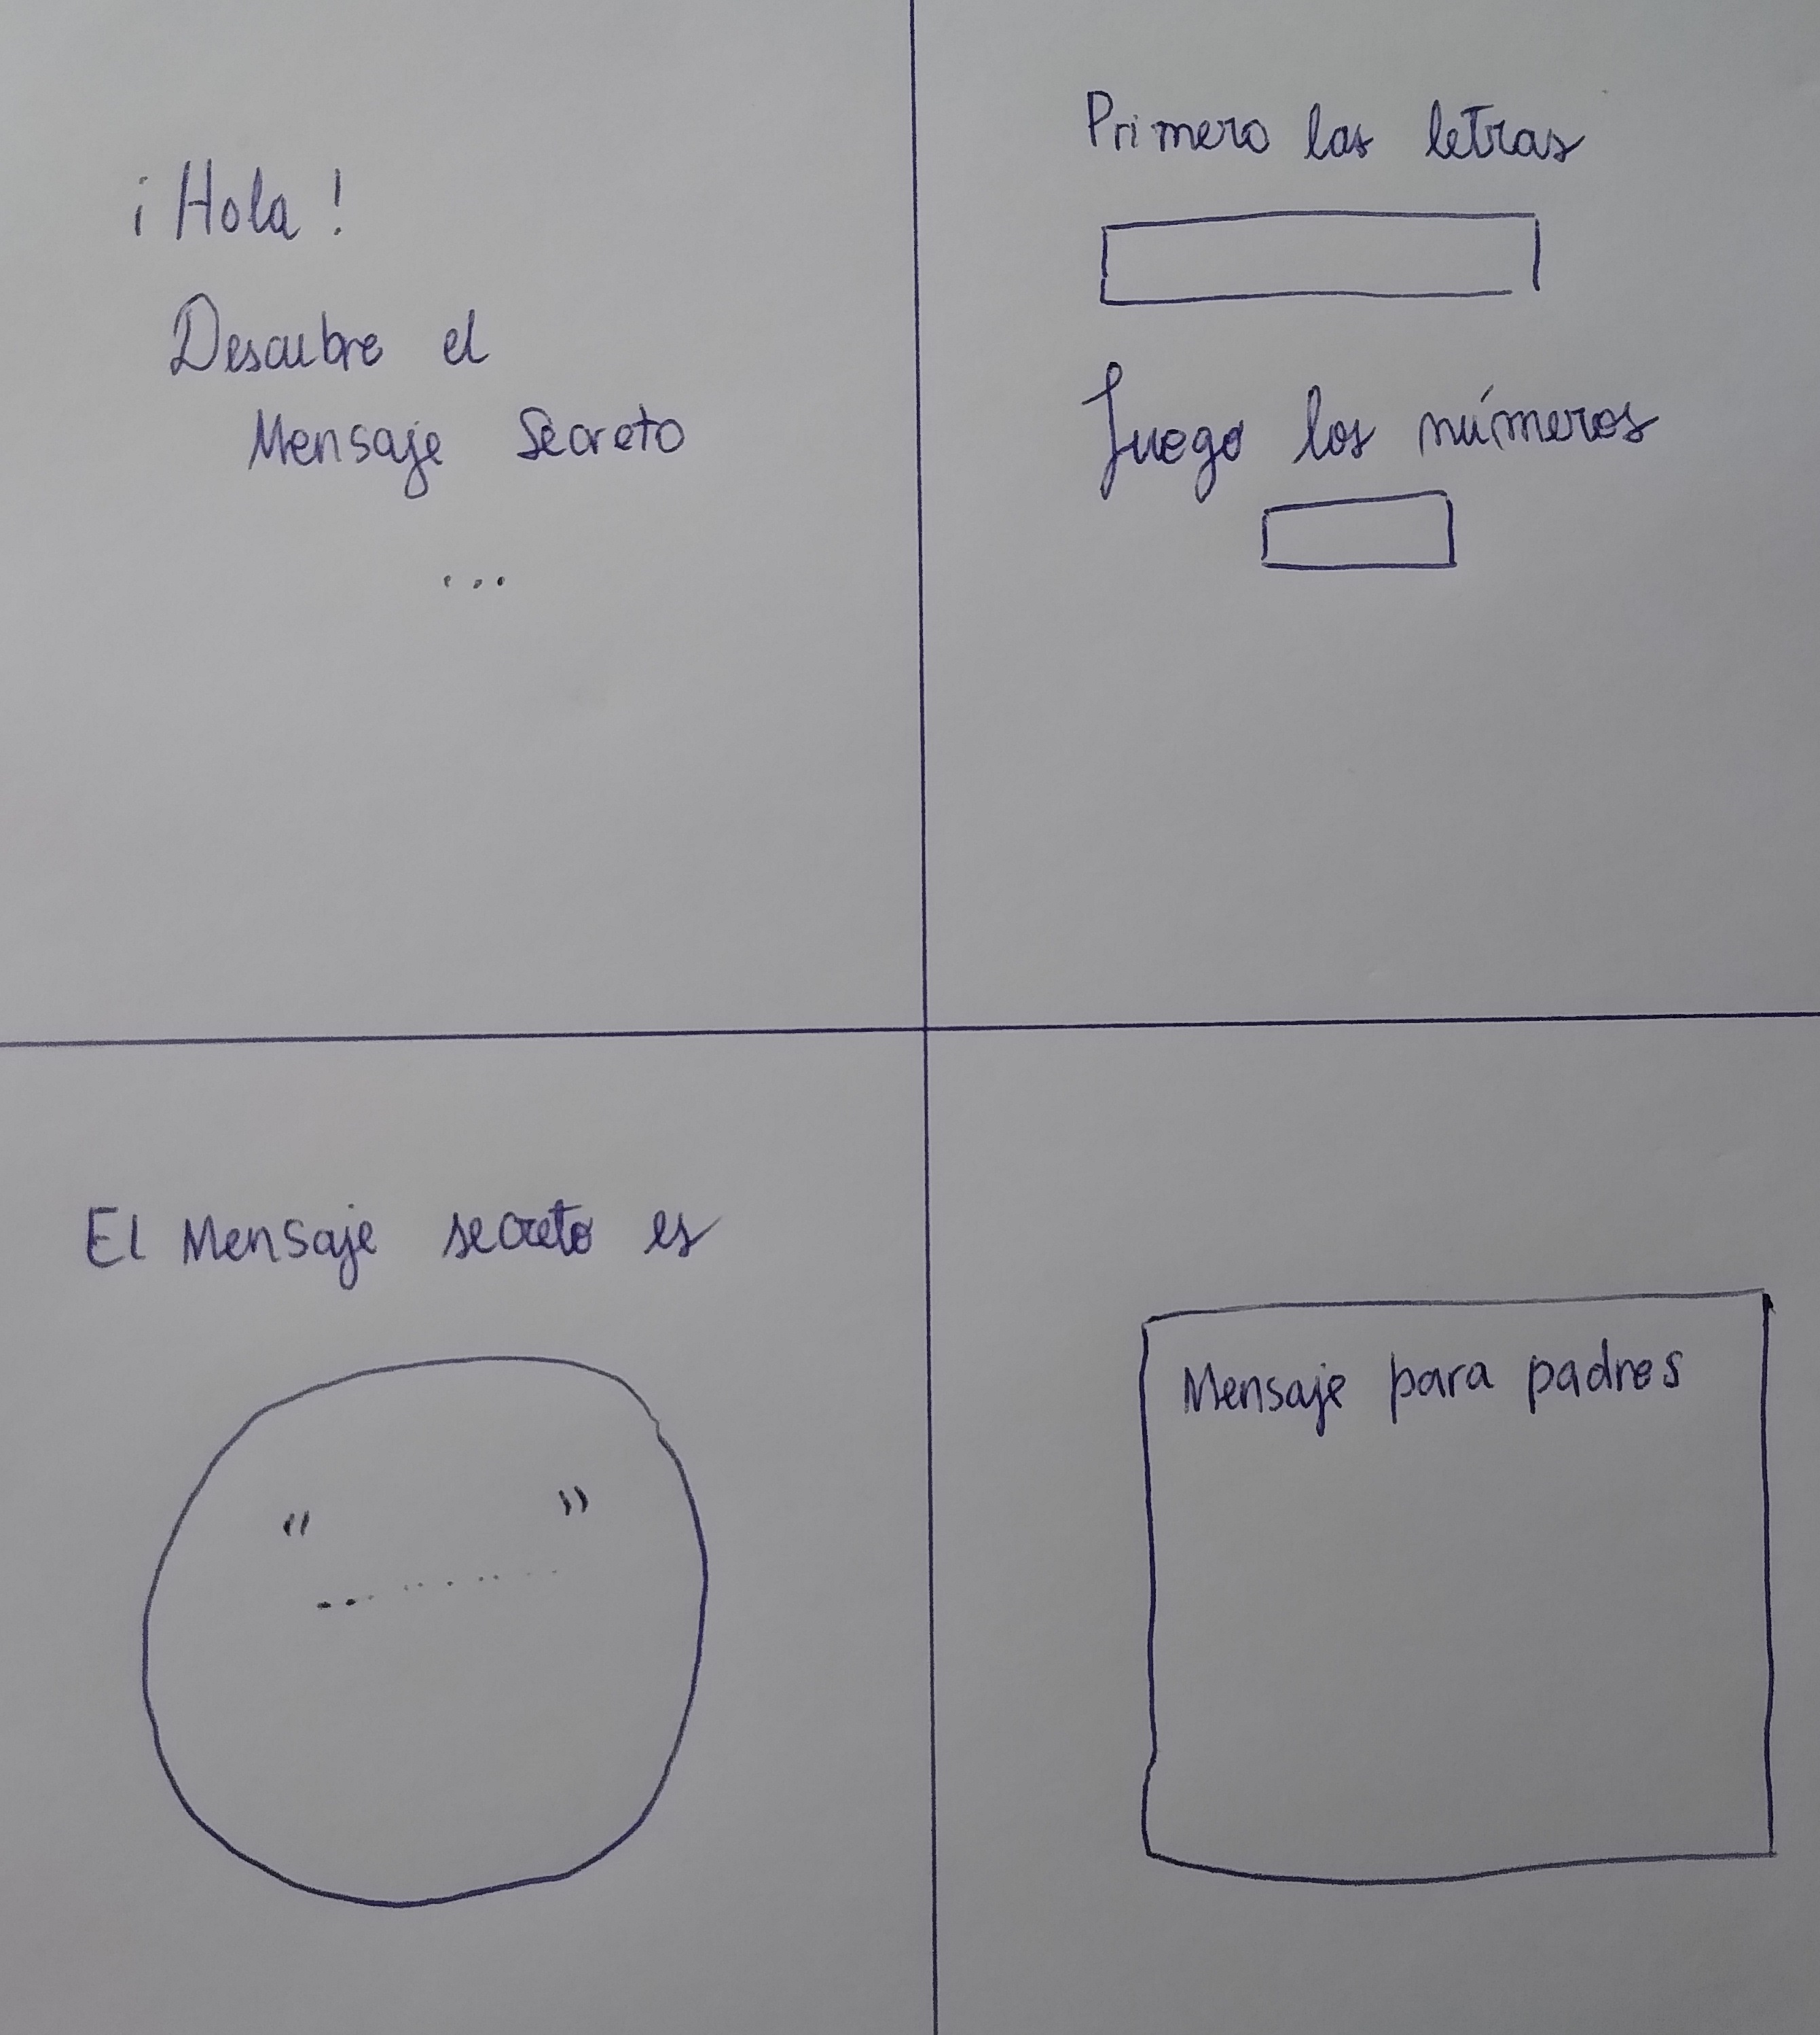 ¡Hola!
Descubre el
Mensaje Secreto
...
Primero las letras
Luego los números
El Mensaje secreto es
" "
..........
Mensaje para padres